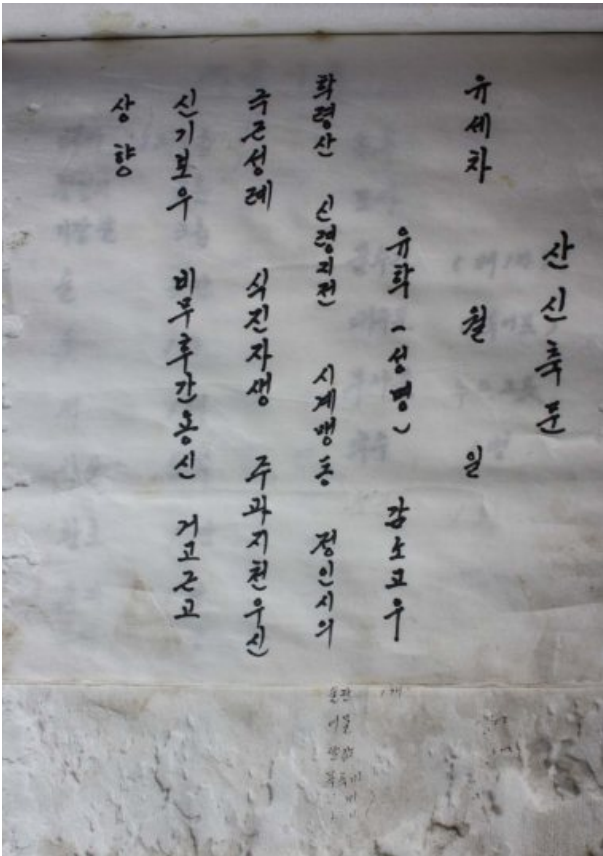 산신축문
유세차 월 일
유학 (성명) 감소고우
학령산 신령지전 시계맹동 정인시의
극근성례 식진자생 주과지천우신
신기보우 비무후간용신 거고근고
상향